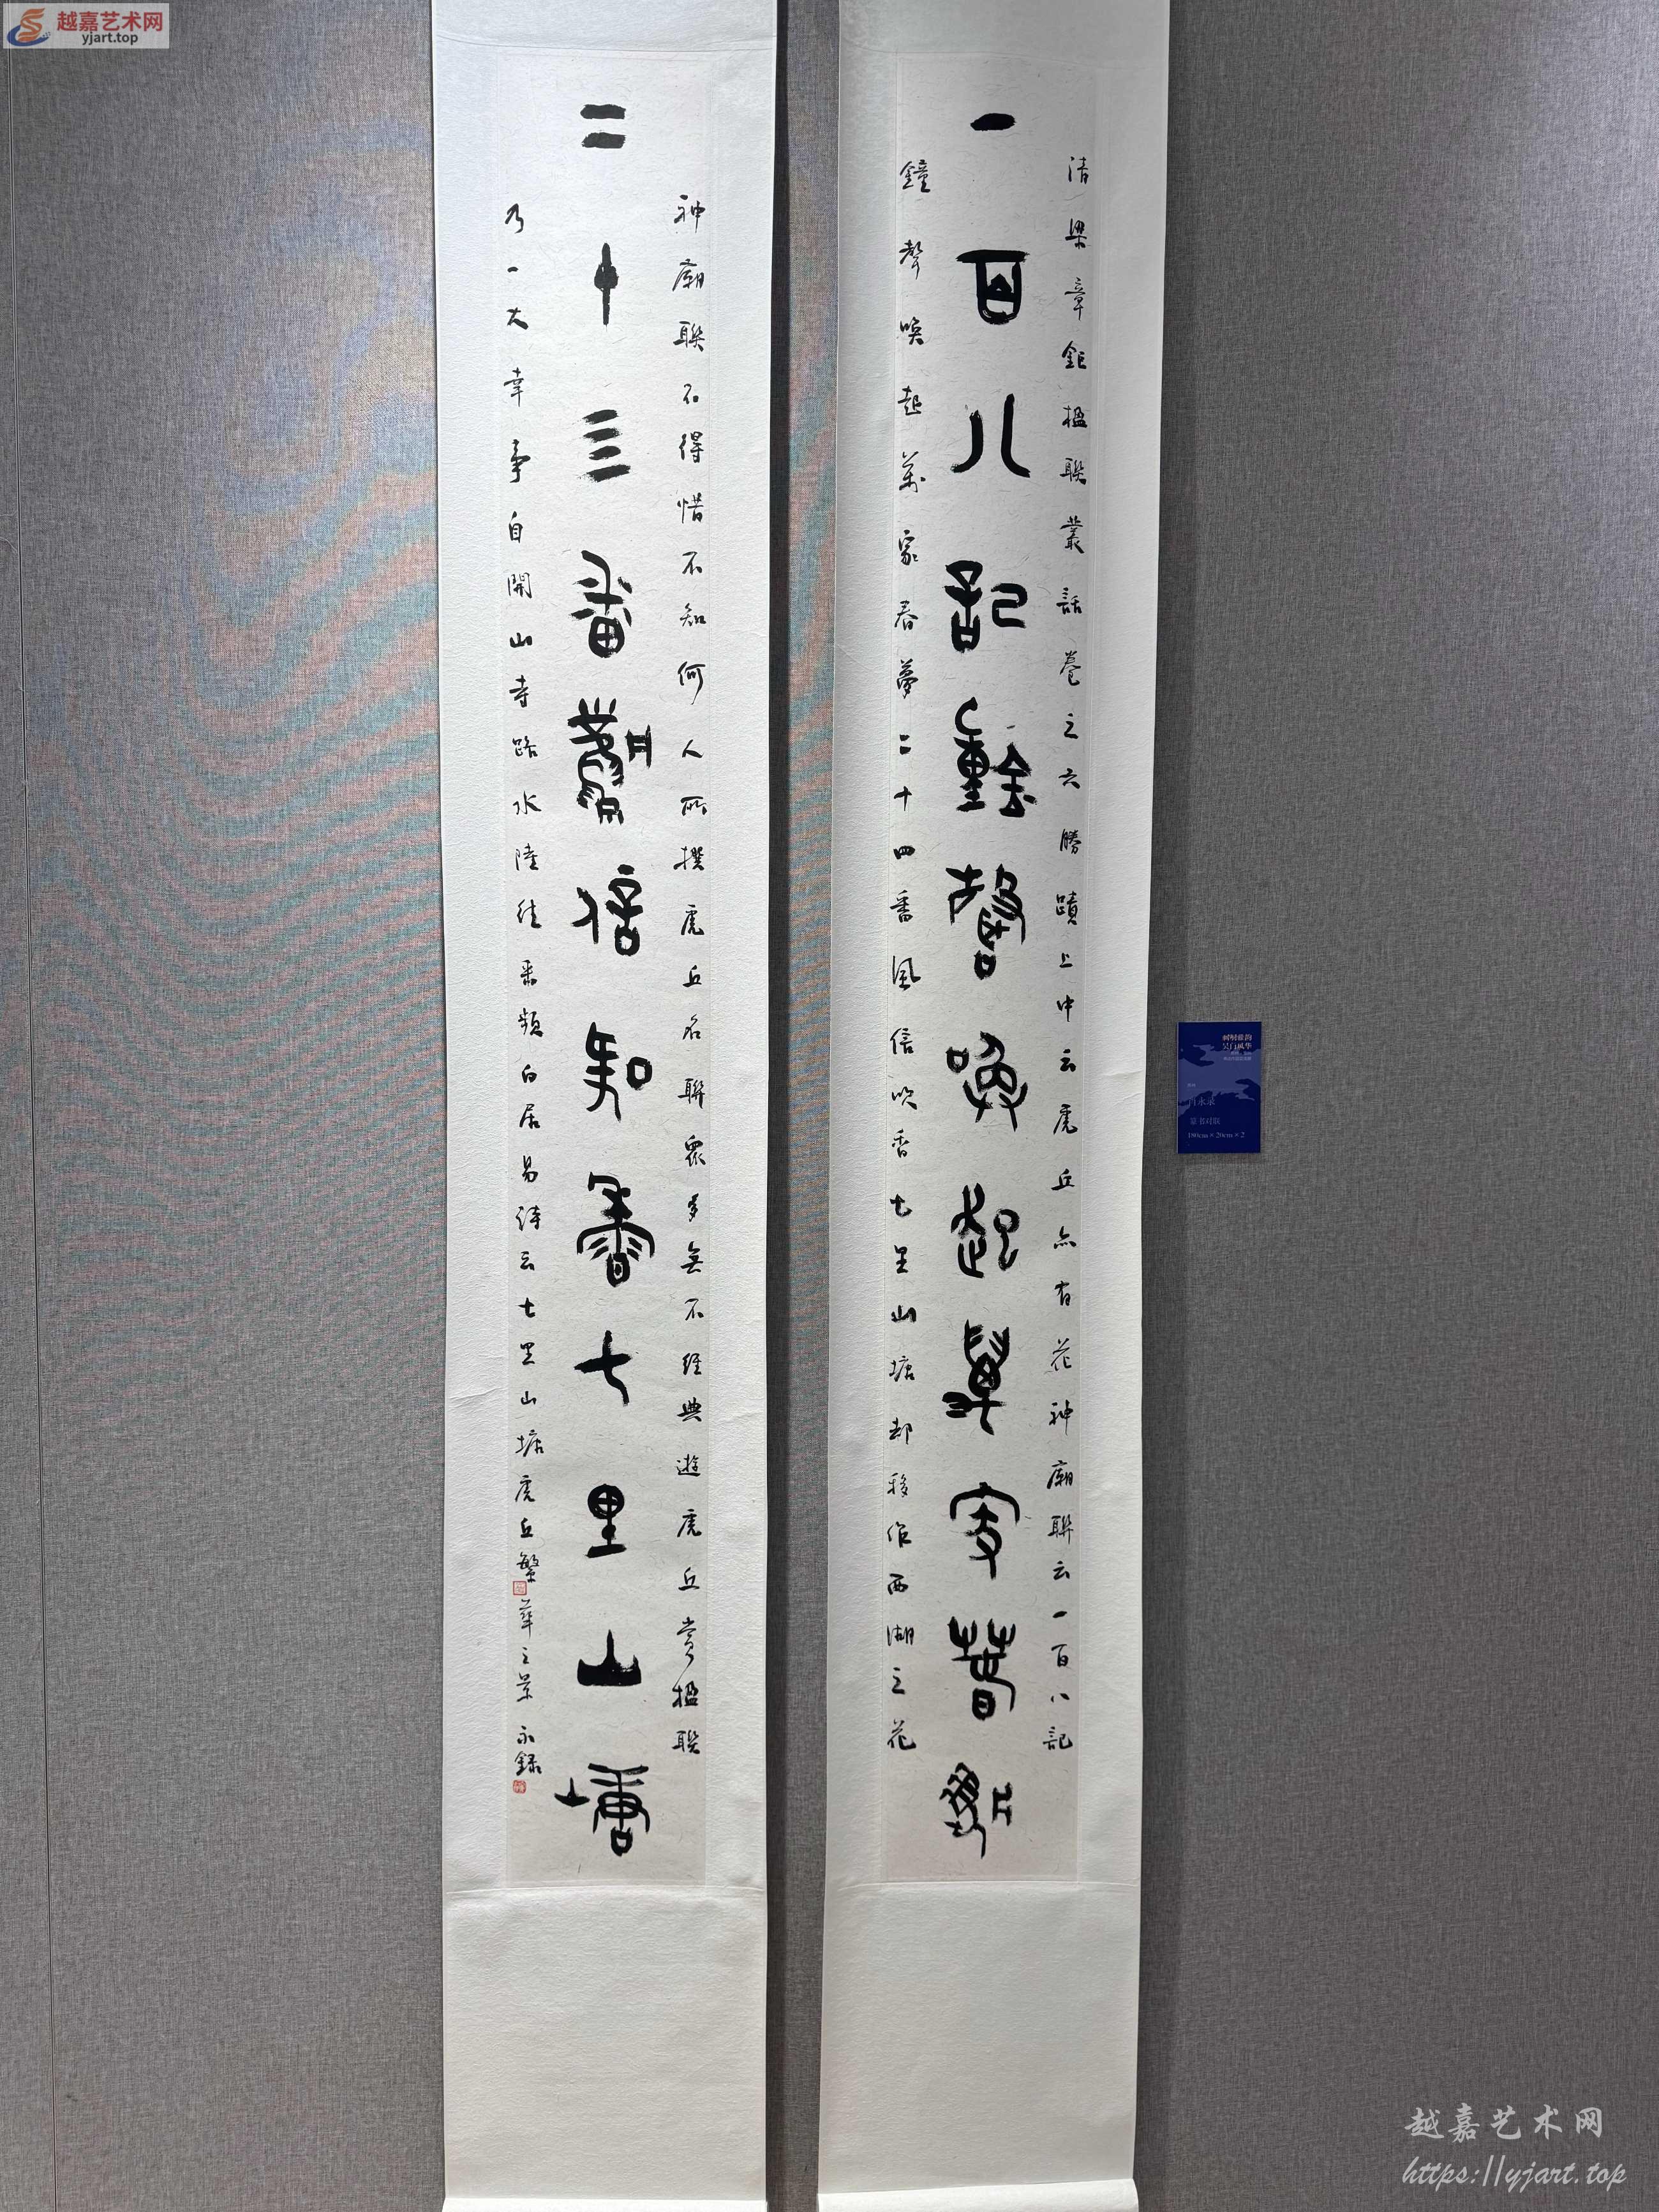 越嘉艺术网
yjart.top
清梁章鉅楹聯叢話卷之六勝蹟上中云虎丘亦有花神廟聯云一百八記
一百八記鐘聲喚起萬家春夢
鐘聲喚起萬家春夢二十四番風信吹香七里山塘却移作西湖之花
神廟聯不得惜不知何人所撰虎丘名聯眾多無不經典遊虎丘賞楹聯
二十四番風信吹香七里山塘
乃一大幸事自開山寺路水陸往來頻白居易詩云七里山塘虎丘繁華之景 永錄
永录
篆书对联
180cm×20cm×2
越嘉艺术网
https://yjart.top